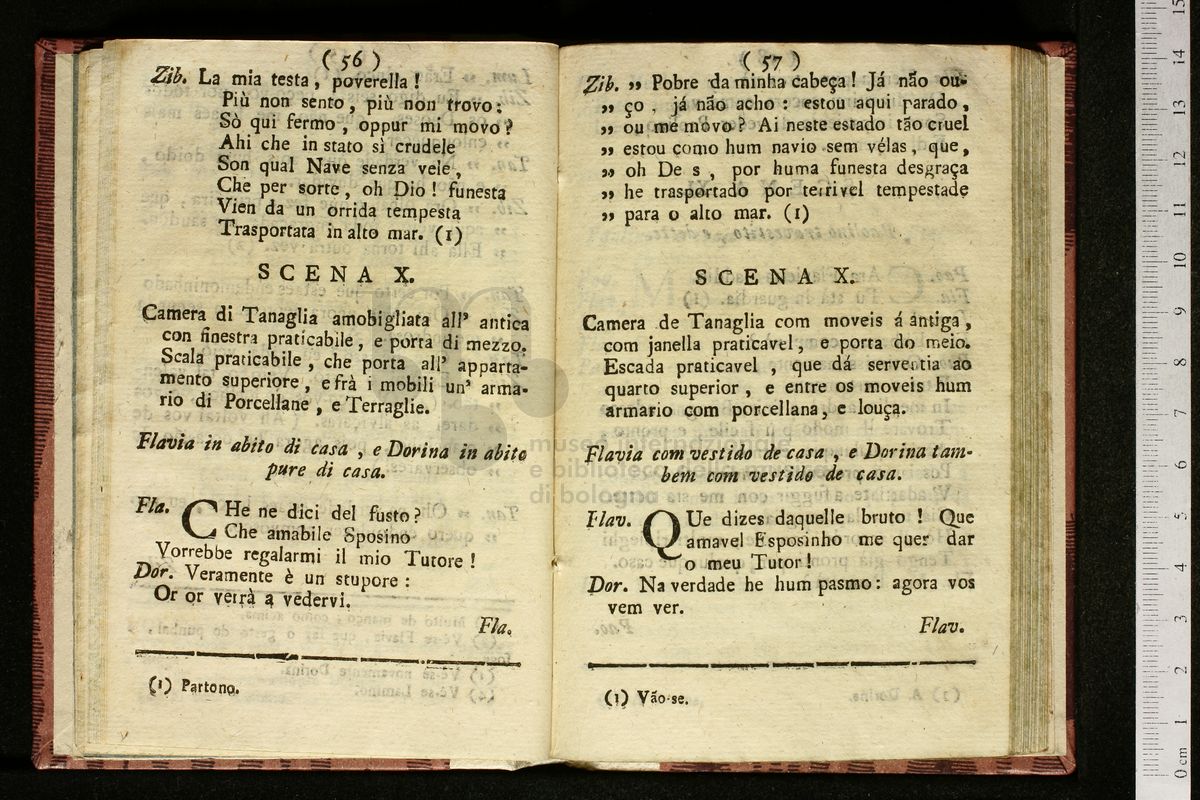 (56)
Zib. La mia testa, poverella!
Più non sento, più non trovo:
Sò qui fermo, oppur mi movo?
Ahi che in stato sì crudele
Son qual Nave senza vele,
Che per sorte, oh Dio! funesta
Vien da un orrida tempesta
Trasportata in alto mar. (1)
SCENA X.
Camera di Tanaglia amobigliata all' antica
con finestra praticabile, e porta di mezzo.
Scala praticabile, che porta all' apparta-
mento superiore, e frà i mobili un' arma-
rio di Porcellane, e Terraglie.
Flavia in abito di casa, e Dorina in abito
pure di casa.
Fla. CHe ne dici del fusto?
Che amabile Sposino
Vorrebbe regalarmi il mio Tutore!
Dor. Veramente è un stupore:
Or or verrà a vedervi.
Fla.
(1) Partono.
(57)
Zib. ,, Pobre da minha cabeça! Já não ou-
,, ço, já não acho: estou aqui parado,
,, ou me movo? Ai neste estado tão cruel
,, estou como hum navio sem vélas, que,
,, oh De s, por huma funesta desgraça
,, he trasportado por terrivel tempestade
,, para o alto mar. (1)
SCENA X.
Camera de Tanaglia com moveis á antiga,
com janella praticavel, e porta do meio.
Escada praticavel, que dá serventia ao
quarto superior, e entre os moveis hum
armario com porcellana, e louça.
Flavia com vestido de casa, e Dorina tam-
bem com vestido de casa.
Flav. QUe dizes daquelle bruto! Que
amavel Esposinho me quer dar
o meu Tutor!
Dor. Na verdade he hum pasmo: agora vos
vem ver.
Flav.
(1) Vão-se.
museo internazionale
e biblioteca della musica
di bologna
0 cm 1 2 3 4 5 6 7 8 9 10 11 12 13 14 15